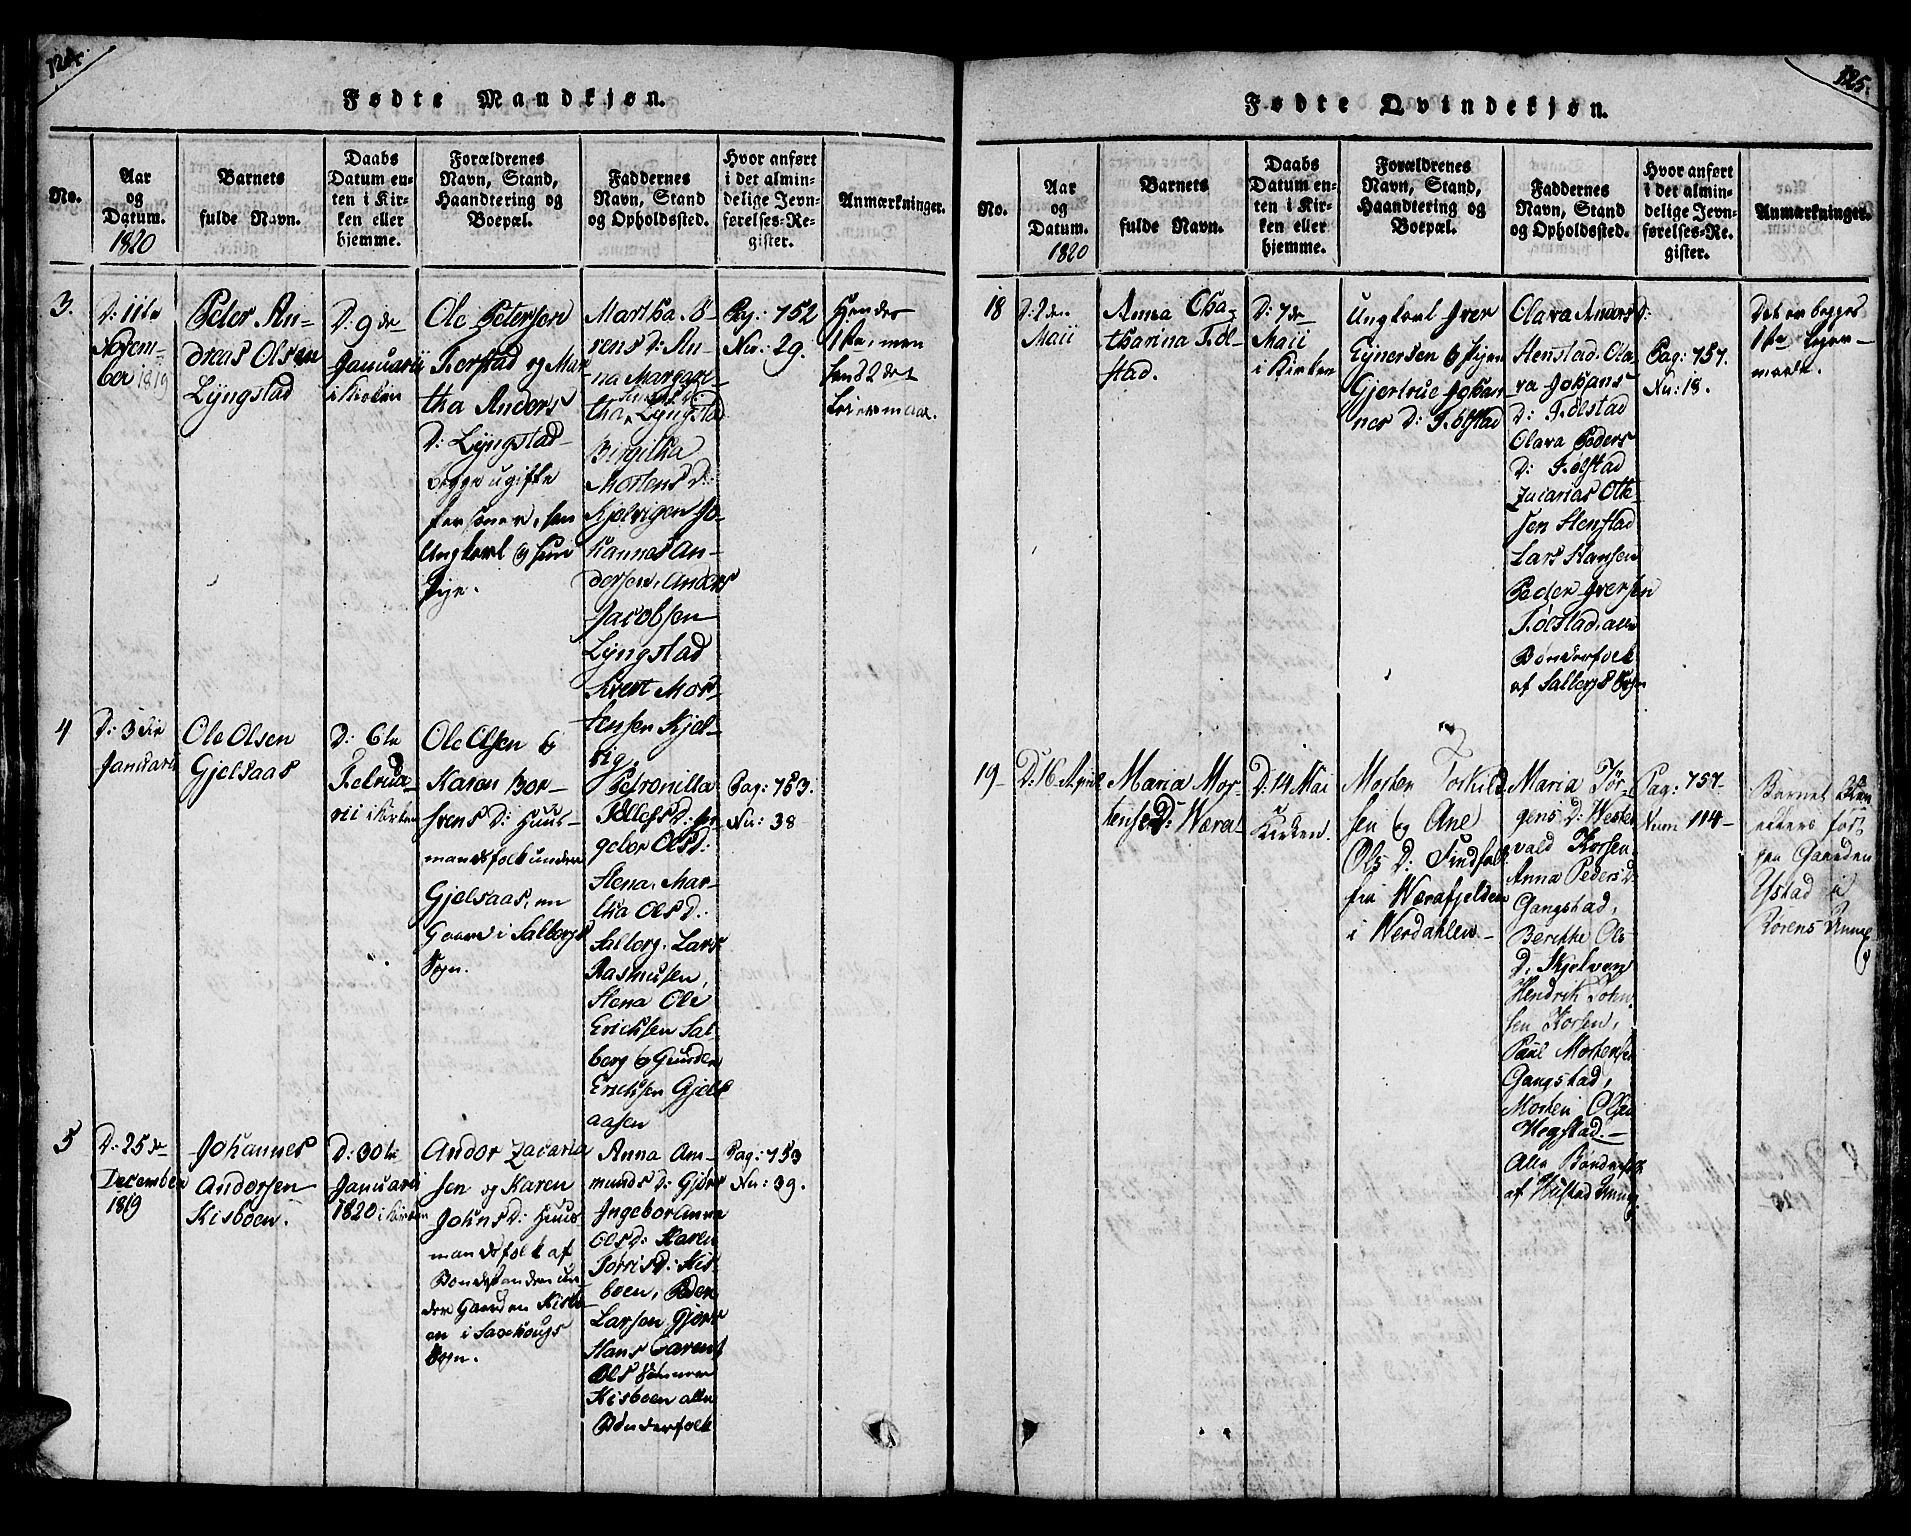 124.
Fødte Mandkjøn.
No.
Aar
og
Datum.
1820
Barnets
fulde Navn.
Daabs
Datum en-
ten i Kir-
ken eller
hjemme.
Forældrenes
Navn, Stand,
Haandtering og
Boepæl.
Faddernes
Navn, Stand
og Opholdssted.
Hvor anført
i det almin-
delige Jevn-
førelses-Re-
gister.
Anmærkninger.
3.
D: 11te
Novem-
ber 1819
Peter An-
dreas Olsen
Lÿngstad
D: 9de
Januarii
i Kirken
Ole Petersen
Forstad og Mar-
tha Anders
D: Lÿngstad
begge ugifte
Personer, han
Ungkarl og hun
Pige.
Martha S-
rens D: An-
na Margare-
tha Lÿngstad
Birgitha
Mortens D:
Kjelvigen Jo-
hannes An-
dersen, Anders
Jacobsen
Lÿngstad
Sivert Mor-
tensen Kjel-
vig.
Pag: 152
Nr: 29.
Hendes
1ste, men
hans 2det
Leiermaal.
4
D: 3die
Januarii
Ole Olsen
Gjelsaas
D: 6te
Februa-
rii i Kirken
Ole Olsen og
Karen Tor-
stens D: Huus-
mandsfolk under
Gjelsaas, en
Gaard i Salbergs
Sogn.
Petronilla
Tollefs D: In-
gebor Ols D:
Stena, Mar-
tha Ols D:
Salberg, Lars
Rasmusen,
Stena Ole
Ericksen Sal-
berg og Gunder
Ericksen Gjels-
aasen
Pag: 153.
Nr: 38
5
D: 25de
December
1819
Johannes
Andersen
Kisboen.
D: 30te
Januarii
1820 i Kirken
Andor Zacaria
sen og Karen
Johns D: Huus
mandsfolk af
Bondestanden un-
der Gaarden Kisbo-
en i Saxhougs
Sogn.
Anna Am-
munds D: Gjørv
Ingebor Anna
Ols D: Karen
Torris D: Kis-
boen, Peder
Larsen Gjørv
Hans Arent
Ols Sønner
Kisboen alle
Bønderfolk
Pag: 153
Nr: 39.
125.
Fødte Qvindekjøn.
No.
Aar
og
Datum.
1820
Barnets
fulde Navn.
Daabs
Datum en-
ten i Kir-
ken eller
hjemme.
Forældrenes
Navn, Stand,
Haandtering og
Boepæl.
Faddernes
Navn, Stand
og Opholdssted.
Hvor anført
i det almin-
delige Jevn-
førelses-Re-
gister.
Anmærkninger.
18
D: 2den
Maii
Anna Cha-
tharina Føl-
stad.
D: 7de
Maii
i Kirken
Ungkarl Iver
Ejnersen og Pigen
Gjertrue Johan
nes D: Følstad
Olava Anders D:
Stenstad, Ola
va Johans
D: Følstad
Olava Peders
D: Følstad
Zacarias Ole
sen Stenstad
Lars Hansen
Peder Iversen
Følstad, alle
Bønderfolk
af Salbergs Sogn
Pag: 157.
Nu: 18.
Det er begges
1ste Leyer-
maal.
19
D: 16 April
Maria Mor-
tensen D: Wæra
D: 14 Mai
i
Kirken.
Morten Torkild
sen og Ane
Ols D: Sindfal
fra Wærafjelden
i Werdahlen
Maria Jør-
gens D: Wester
vald Korsen,
Anna Peders D:
Gangstad,
Berethe Ols
D. Skjelven
Hendrik John
sen Korsen,
Paul Mortensen
Gangstad,
Morten Olsen
Hegstad.
Alle Bøndrefolk
af Hustad Anneg
Pag: 157
Num 114
Barnet blev
født
paa Gaarden
Ystad i
Sørens Anneg